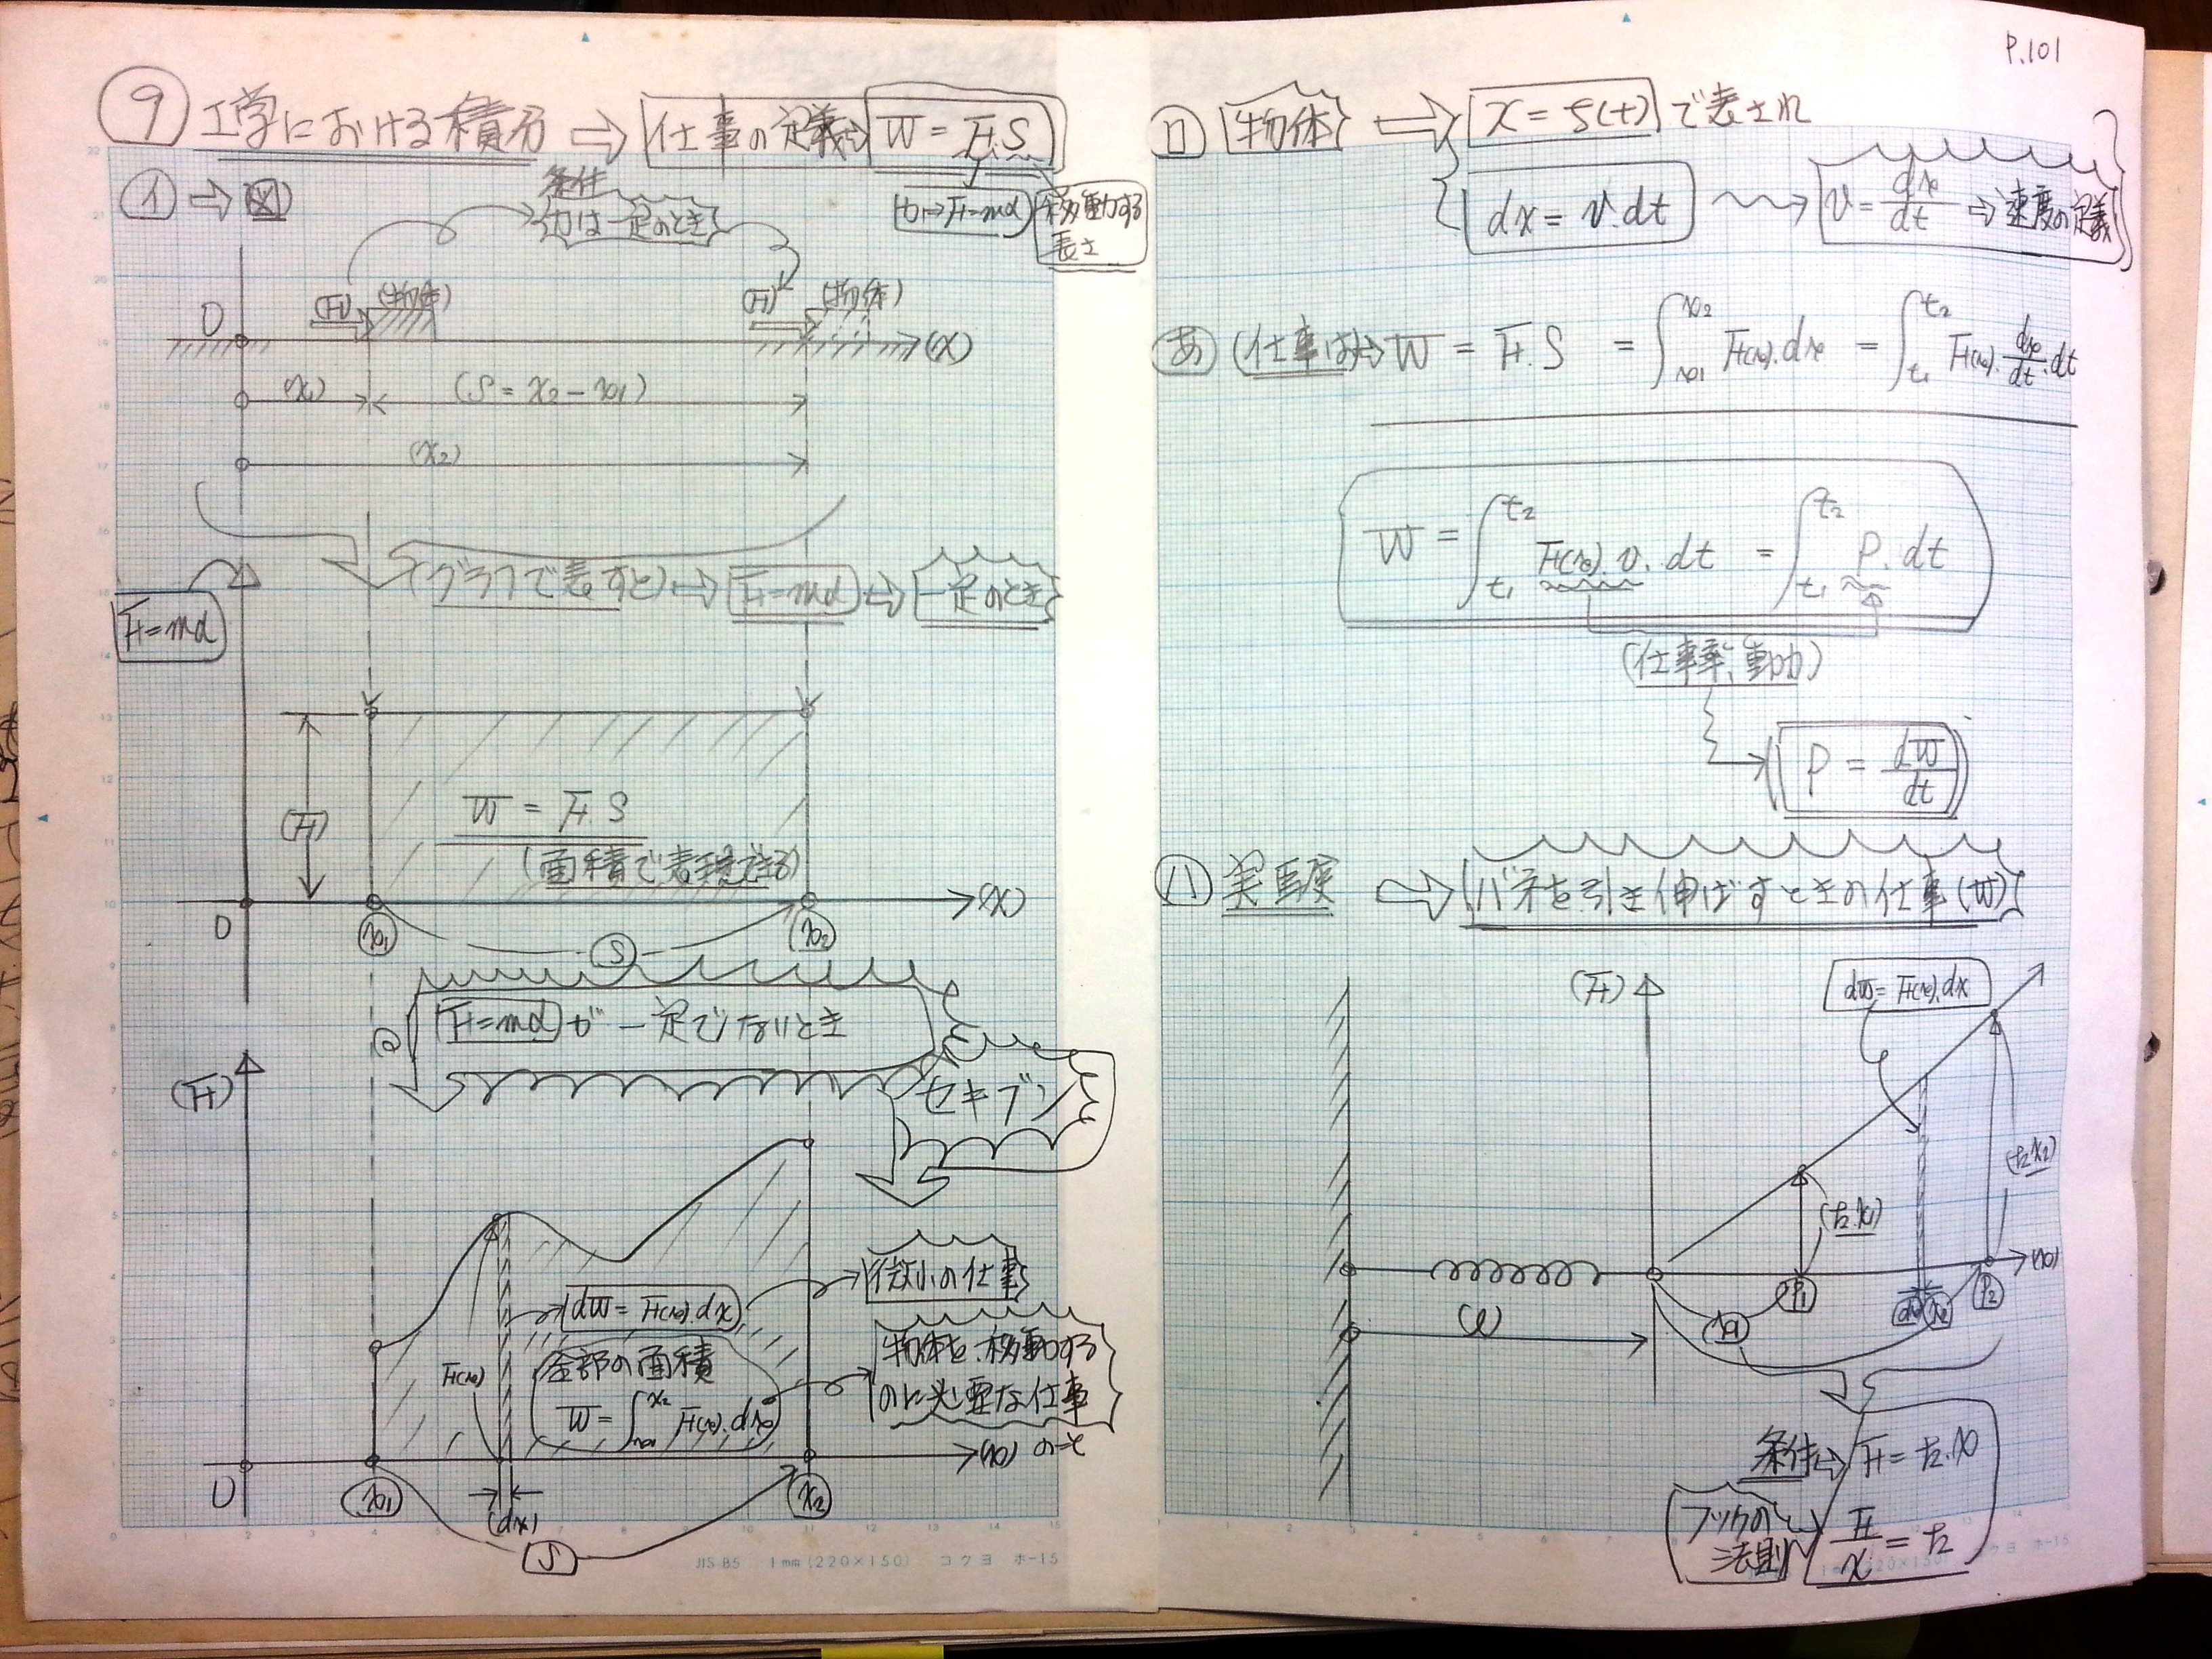 P.101
⑨ 工学における積分 ⇨ 仕事の定義⇨ W = F.S
力⇨F=mα
移動する
長さ
㋑ ⇨ 図
条件
力は一定のとき
(F) (物体) (F) (物体)
O (x)
(x1) (S = x2 - x1)
(x2)
(グラフで表すと) ⇨ F=mα ⇨ 一定のとき
F=mα
(F)
W = F.S
(面積で表現できる)
O x1 S x2 (x)
F=mα が 一定でないとき
セキブン
(F)
dW = F(x).dx 微小の仕事
F(x)
全部の面積
W = ∫x1 x2 F(x).dx
物体を移動する
のに必要な仕事
のこと
O x1 (dx) x2 (x)
S
JIS B5 1mm (220×150) コクヨ ホ-15
㋺ 物体 ⇨ x = S(t) で表され
dx = v.dt v = dx/dt ⇨ 速度の定義
あ (仕事は)⇨ W = F.S = ∫x1 x2 F(x).dx = ∫t1 t2 F(x).dx/dt.dt
W = ∫t1 t2 F(x).v.dt = ∫t1 t2 P.dt
(仕事率、動力)
P = dW/dt
㋩ 実験 ⇨ バネを引き伸ばすときの仕事(W)
(F) dW = F(x).dx
(k.x2)
(k.x1)
(x)
P1 dx x2 P2
x1
条件⇨ F = k.x
フックの
法則
F/x = k
1mm (220×150) コクヨ ホ-15